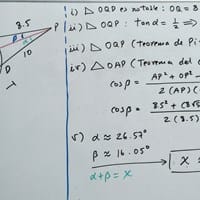 8.5
P
β
α
10
D
i) △ OQD es notable: OQ = 8
ii) △ OQP : tan α = 1/2 ⇒
iii) △ OQP (Teorema de Pi
iv) △ OAP (Teorema del
cos β = AP² + OP² -
2 (AP) (
cos β = 8.5² + (8√5
2 (8.5)
v) α ≈ 26.57°
β ≈ 16.05°
α + β = x
x ≈